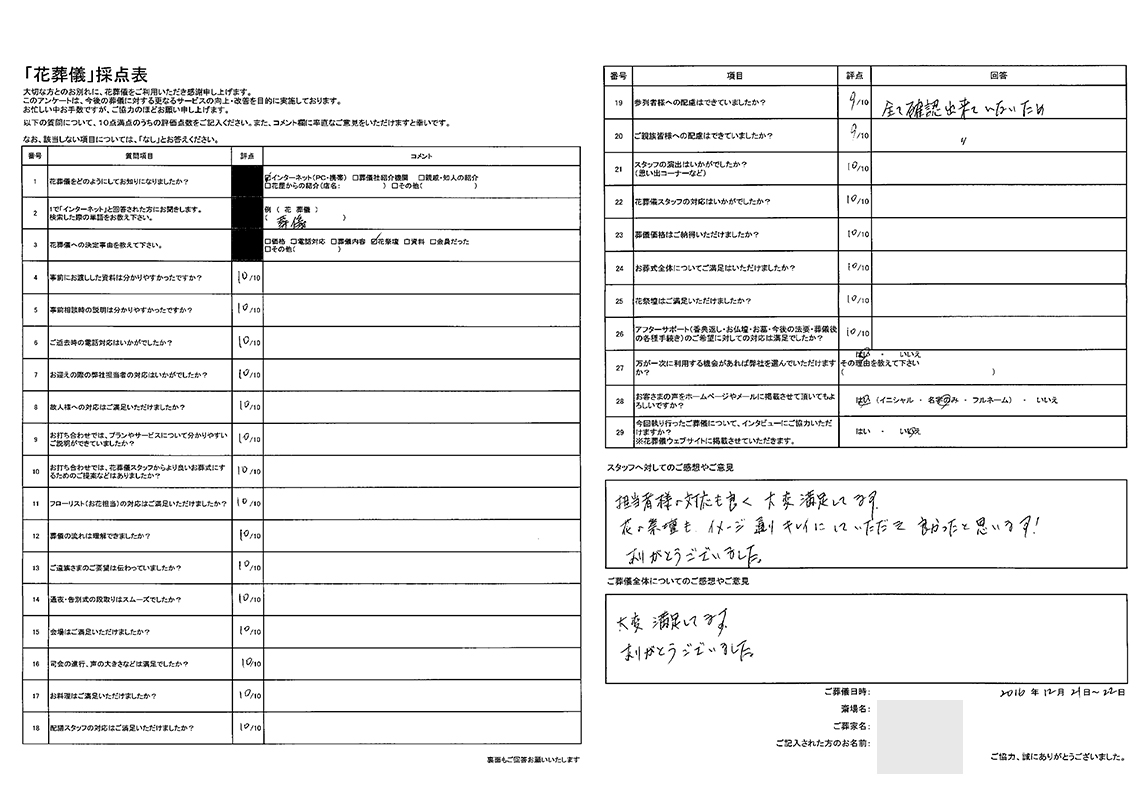 「花葬儀」採点表
大切な方とのお別れに、花葬儀をご利用いただき感謝申し上げます。
このアンケートは、今後の葬儀に対する更なるサービスの向上・改善を目的に実施しております。
お忙しい中お手数ですが、ご協力のほどお願い申し上げます。
以下の質問について、10点満点のうちの評価点数をご記入ください。また、コメント欄に率直なご意見をいただけますと幸いです。
なお、該当しない項目については、「なし」とお答えください。
番号 質問項目 評点 コメント
1 花葬儀をどのようにしてお知りになりましたか? ☑インターネット(PC・携帯) □葬儀社紹介機関 □親戚・知人の紹介
□花屋からの紹介(店名: ) □その他( )
2 1で「インターネット」と回答された方にお聞きします。
検索した際の単語をお教え下さい。
例 ( 花 葬儀 )
( 葬儀 )
3 花葬儀への決定事由を教えて下さい。 □価格 □電話対応 □葬儀内容 ☑花祭壇 □資料 □会員だった
□その他( )
4 事前にお渡しした資料は分かりやすかったですか? 10/10
5 事前相談時の説明は分かりやすかったですか? 10/10
6 ご逝去時の電話対応はいかがでしたか? 10/10
7 お迎えの際の弊社担当者の対応はいかがでしたか? 10/10
8 故人様への対応はご満足いただけましたか? 10/10
9 お打ち合わせでは、プランやサービスについて分かりやすい
ご説明ができていましたか? 10/10
10 お打ち合わせでは、花葬儀スタッフからより良いお葬式にす
るためのご提案などはありましたか? 10/10
11 フローリスト(お花担当)の対応はご満足いただけましたか? 10/10
12 葬儀の流れは理解できましたか? 10/10
13 ご遺族さまのご要望は伝わっていましたか? 10/10
14 通夜・告別式の段取りはスムーズでしたか? 10/10
15 会場はご満足いただけましたか? 10/10
16 司会の進行、声の大きさなどは満足でしたか? 10/10
17 お料理はご満足いただけましたか? 10/10
18 配膳スタッフの対応はご満足いただけましたか? 10/10
裏面もご回答お願いいたします
番号 項目 評点 回答
19 参列者様への配慮はできていましたか? 9/10 全て確認出来ていないため
20 ご親族皆様への配慮はできていましたか? 9/10 〃
21 スタッフの演出はいかがでしたか?
(思い出コーナーなど) 10/10
22 花葬儀スタッフの対応はいかがでしたか? 10/10
23 葬儀価格はご納得いただけましたか? 10/10
24 お葬式全体についてご満足はいただけましたか? 10/10
25 花祭壇はご満足いただけましたか? 10/10
26 アフターサポート(香典返し・お仏壇・お墓・今後の法要・葬儀後
の各種手続き)のご希望に対しての対応は満足でしたか? 10/10
27 万が一次に利用する機会があれば弊社を選んでいただけます
か?
はい ・ いいえ
その理由を教えて下さい
( )
28 お客さまの声をホームページやメールに掲載させて頂いてもよ
ろしいですか?
はい (イニシャル ・ 名字のみ ・ フルネーム) ・ いいえ
29 今回執り行ったご葬儀について、インタビューにご協力いただ
けますか?
※花葬儀ウェブサイトに掲載させていただきます。
はい ・ いいえ
スタッフへ対してのご感想やご意見
担当者様の対応も良く 大変満足してます。
花の祭壇も、イメージ通り キレイにしていただきて 良かったと思います!
ありがとうございました。
ご葬儀全体についてのご感想やご意見
大変 満足してます。
ありがとうございました。
ご葬儀日時: 2016 年 12 月 21 日〜22 日
斎場名:
ご葬家名:
ご記入された方のお名前:
ご協力、誠にありがとうございました。